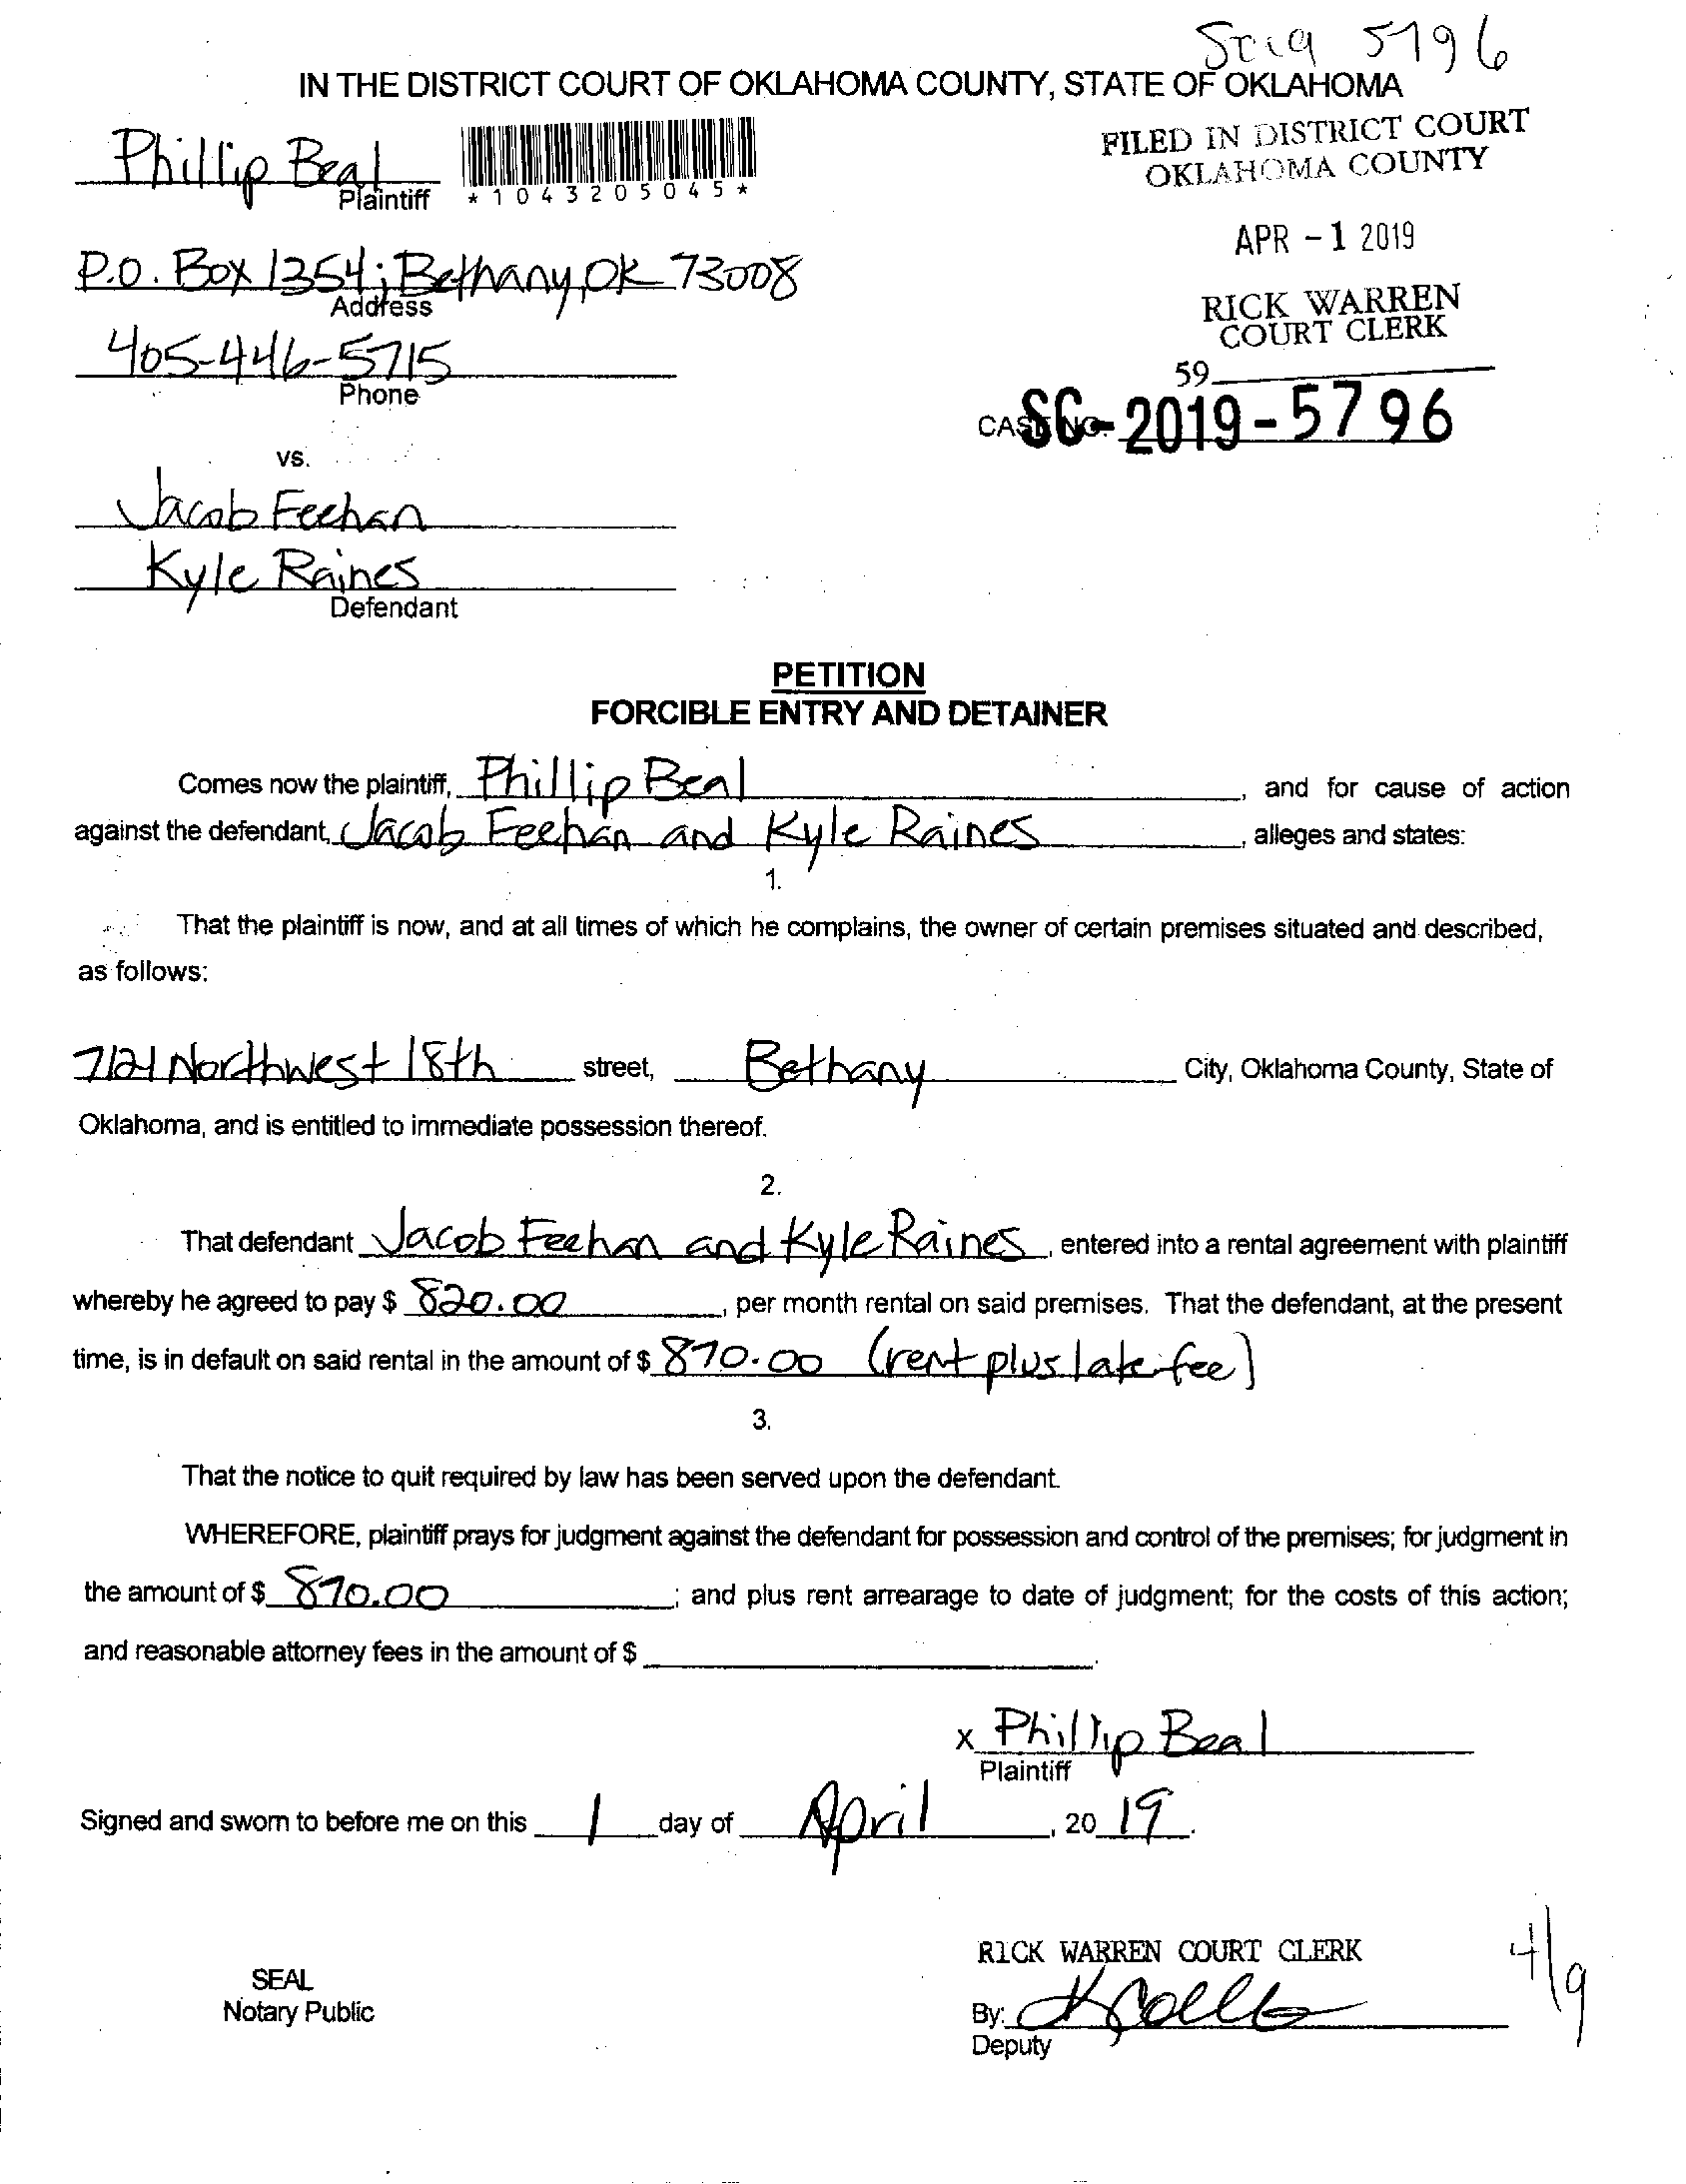 SC19 5796
IN THE DISTRICT COURT OF OKLAHOMA COUNTY, STATE OF OKLAHOMA
FILED IN DISTRICT COURT
OKLAHOMA COUNTY
Phillip Beal
Plaintiff
*1043205045*
APR -1 2019
P.O. Box 1354; Bethany, OK 73008
Address
RICK WARREN
COURT CLERK
405-446-5715
Phone
59
CASE NO. SC-2019-5796
vs.
Jacob Feehan
Kyle Raines
Defendant
PETITION
FORCIBLE ENTRY AND DETAINER
Comes now the plaintiff, Phillip Beal, and for cause of action
against the defendant, Jacob Feehan and Kyle Raines, alleges and states:
1.
That the plaintiff is now, and at all times of which he complains, the owner of certain premises situated and described,
as follows:
7121 Northwest 18th street, Bethany City, Oklahoma County, State of
Oklahoma, and is entitled to immediate possession thereof.
2.
That defendant Jacob Feehan and Kyle Raines, entered into a rental agreement with plaintiff
whereby he agreed to pay $ 820.00, per month rental on said premises. That the defendant, at the present
time, is in default on said rental in the amount of $ 870.00 (rent plus late fee)
3.
That the notice to quit required by law has been served upon the defendant.
WHEREFORE, plaintiff prays for judgment against the defendant for possession and control of the premises; for judgment in
the amount of $ 870.00; and plus rent arrearage to date of judgment; for the costs of this action;
and reasonable attorney fees in the amount of $ .
x Phillip Beal
Plaintiff
Signed and sworn to before me on this 1 day of April, 20 19.
RICK WARREN COURT CLERK
4/9
SEAL
Notary Public
By:
Deputy